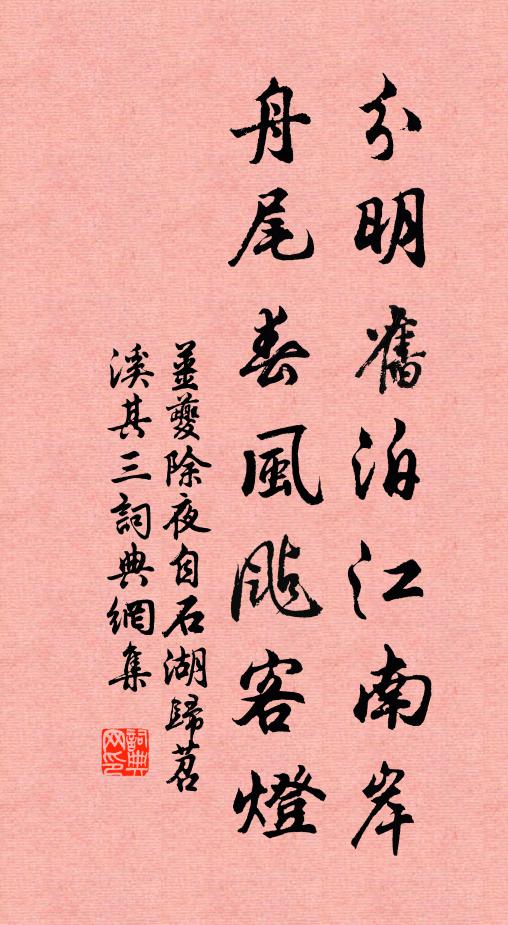 分明舊泊江南岸
舟尾春風颭客燈
姜夔除夜自石湖歸苕
溪其三詞典網集
詞典
网印